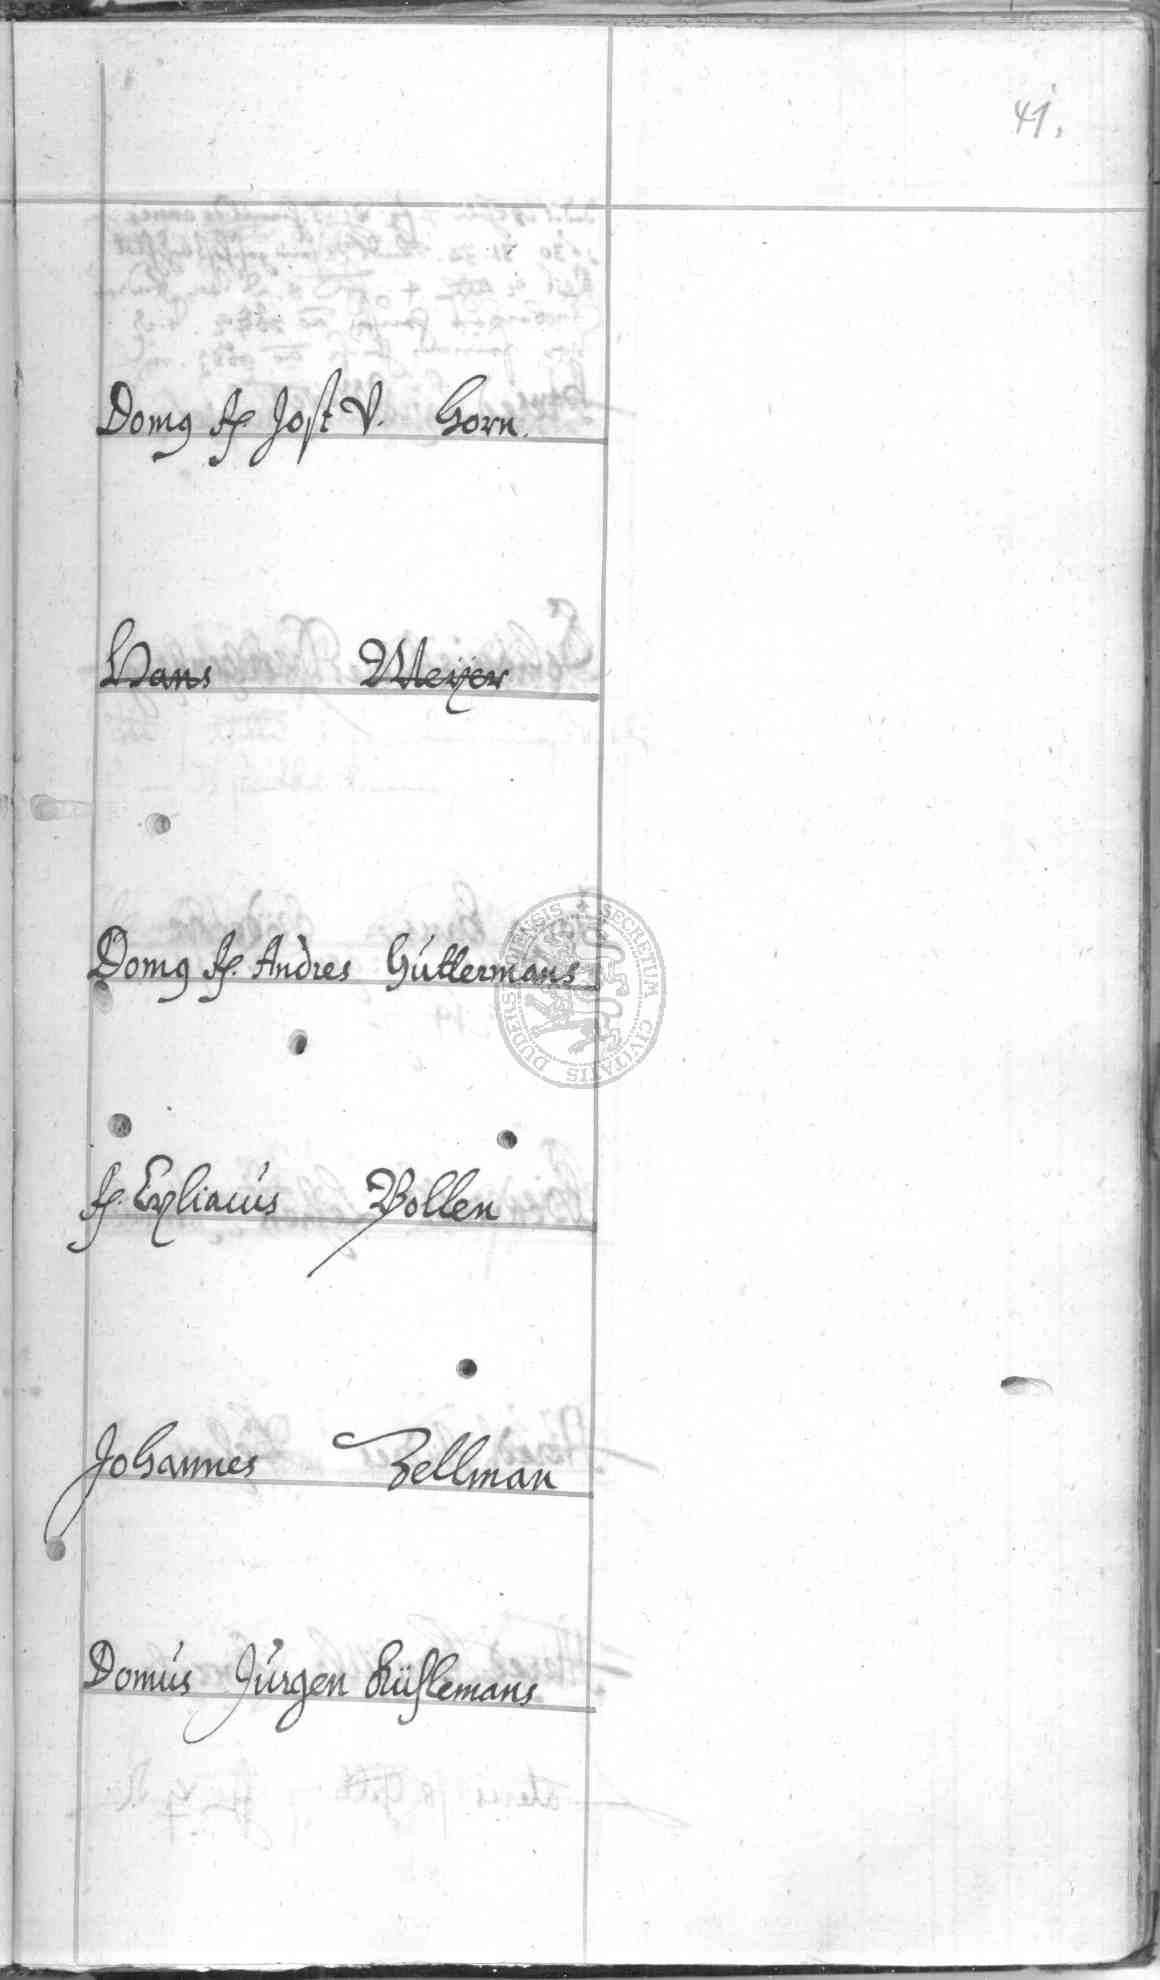 41.
Domus H. Jost V. Horn.
Hans Meÿer
Domus H. Andres Huttermans
H. Cyliacus Bollen
Johannes Zellman
Domus Jürgen Küslemans
SECRETUM CIVITATIS DUDERSTADENSIS